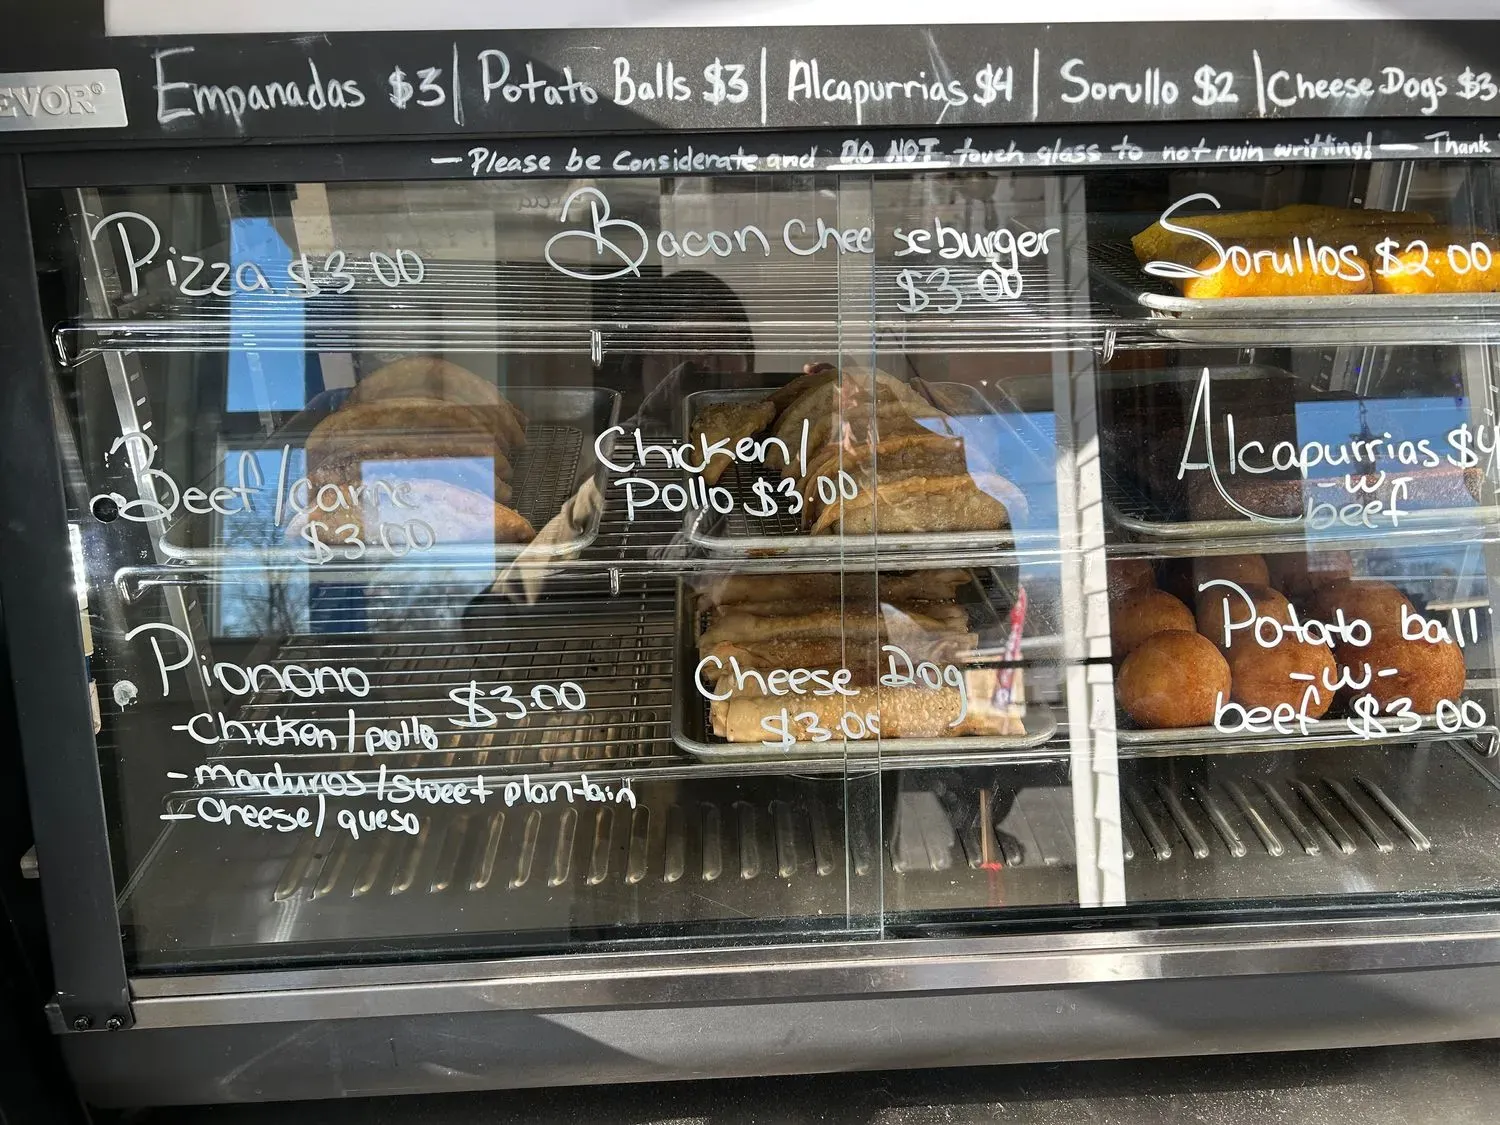 Empanadas $3 | Potato Balls $3 | Alcapurrias $4 | Sorullo $2 | Cheese Dogs $3
EVOR®
— Please be Considerate and DO NOT touch glass to not ruin writting! — Thank
Pizza $3.00
Bacon Cheeseburger
$3.00
Sorullos $2.00
Beef/carne
$3.00
Chicken/
Pollo $3.00
Alcapurrias $4
-w-
beef
Pionono
$3.00
-Chicken/pollo
-maduros/sweet plantain
-cheese/queso
Cheese Dog
$3.00
Potato ball
-w-
beef $3.00